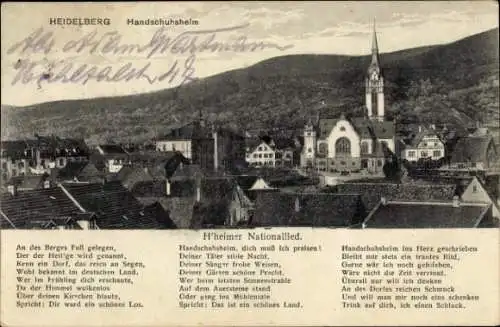 HEIDELBERG Handschuhsheim
H'heimer Nationallied.
An des Berges Fuß gelegen,
Der der Heil'ge wird genannt,
Kenn ein Dorf, das allerwegen
Wohl bekannt im deutschen Land.
Wer im Frühling dich erschaute,
Da der Himmel wolkenlos
Über deinen Kirschen blaute,
Spricht: Dir ward ein schönes Los.
Handschuhsheim, dich muß ich preisen!
Deiner Täler stille Nacht,
Deiner Sänger frohe Weisen,
Deiner Gärten schöne Pracht.
Wer beim letzten Sonnenstrahle
Auf dem Auerstein stand
Oder ging ins Mühlental
Spricht: Das ist ein schönes Land.
Handschuhsheim ins Herz geschrieben
Bleibt mir stets ein trautes Bild,
Gerne wär ich noch geblieben,
Wäre nicht die Zeit verrinnt.
Überall nur will ich denken
An des Dorfes reichen Schmuck
Und will man mir noch eins schenken
Trink auf dich, ich einen Schluck.